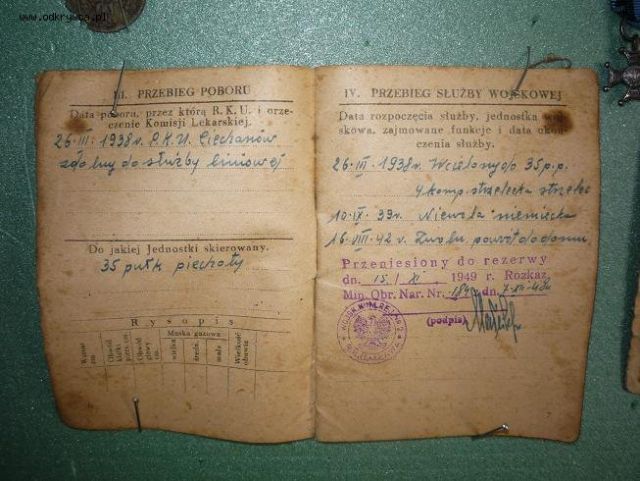 www.odkrywca.pl
III. PRZEBIEG POBORU
Data poboru, przez którą R. K. U. i orze-
czenie Komisji Lekarskiej.
26·III·1938 r. P.K.U. Ciechanów
zdolny do służby liniowej
Do jakiej Jednostki skierowany.
35 pułk piechoty
Rysopis
Wzrost cm.
Obwód klatki piers. cm
Obwód głowy cm.
Maska gazowa
wielka
średn.
mała
Wielkość obuwia
IV. PRZEBIEG SŁUŻBY WOJSKOWEJ
Data rozpoczęcia służby, jednostka woj-
skowa, zajmowane funkcje i data ukoń-
czenia służby.
26·III·1938 r. Wcielony do 35 p.p.
4 komp. strzelecka strzelec
10·IX·39 r. Niewola niemiecka
16·VIII·42 r. Zwoln. powrót do domu
Przeniesiony do rezerwy
dn. 15/ X 1949 r. Rozkaz
Min. Obr. Nar. Nr. dn.
(podpis)